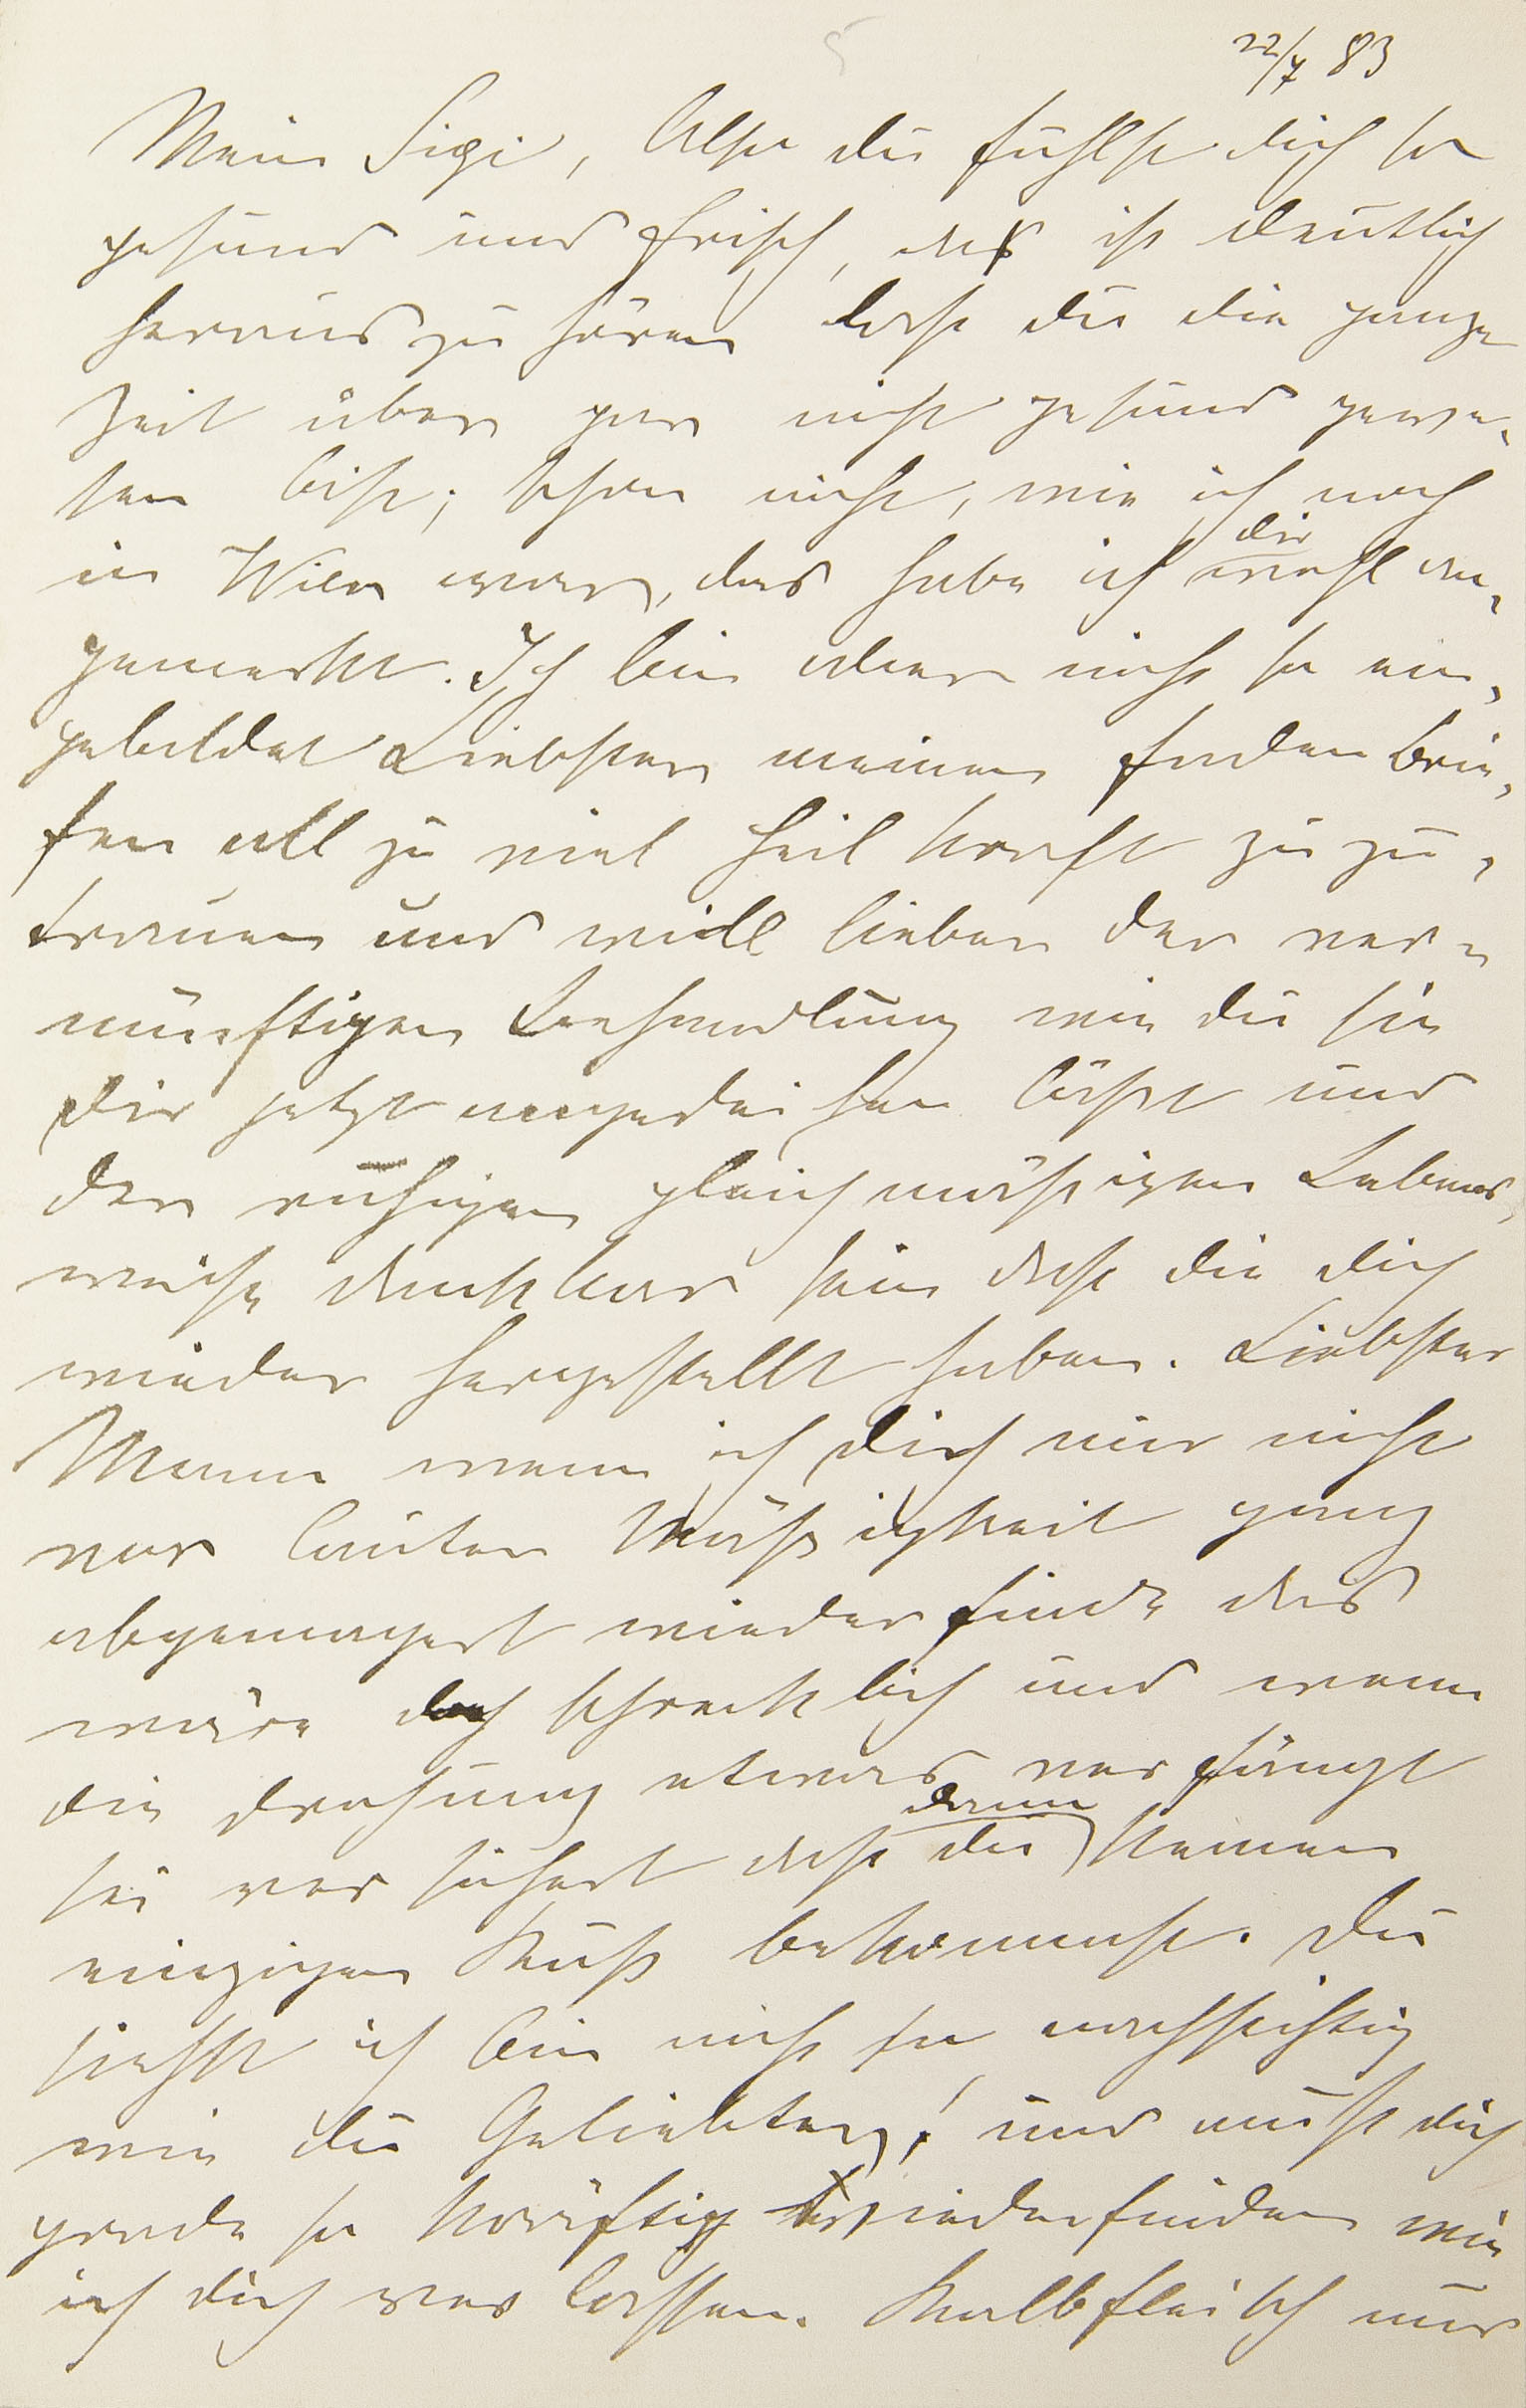 5
22/7 83
Mein Sigi, Also du fühlst dich so
gesund und frisch, das ist deutlich
heraus zu hören dass du die ganze
Zeit über gar nicht gesund gewe-
sen bist; schon nicht, wie ich noch
in Wien war, das habe ich dir wohl an-
gemerkt. Ich bin aber nicht so ein-
gebildet Liebster meinen faden Brie-
fen all zu viel Heil kraft zu zu-
trauen und will lieber der ver-
nünftigen Behandlung wie du sie
dir jetzt angedeihen läßst und
der ruhigen gleichmäßigen Lebens-
weise dankbar sein daß die dich
wieder hergestellt haben. Liebster
Mann wenn ich dich nur nicht
vor lauter Mäßigkeit ganz
abgemagert wieder finde das
wäre doch schrecklich und wenn
die Drohung etwas verfängt
sei versichert daß du dann keinen
einzigen Kuß bekommst. Du
siehst ich bin nicht so nachsichtig
wie du Geliebter! und muß dich
grade so kräftig wiederfinden wie
ich dich verlassen. Kalbfleisch nur